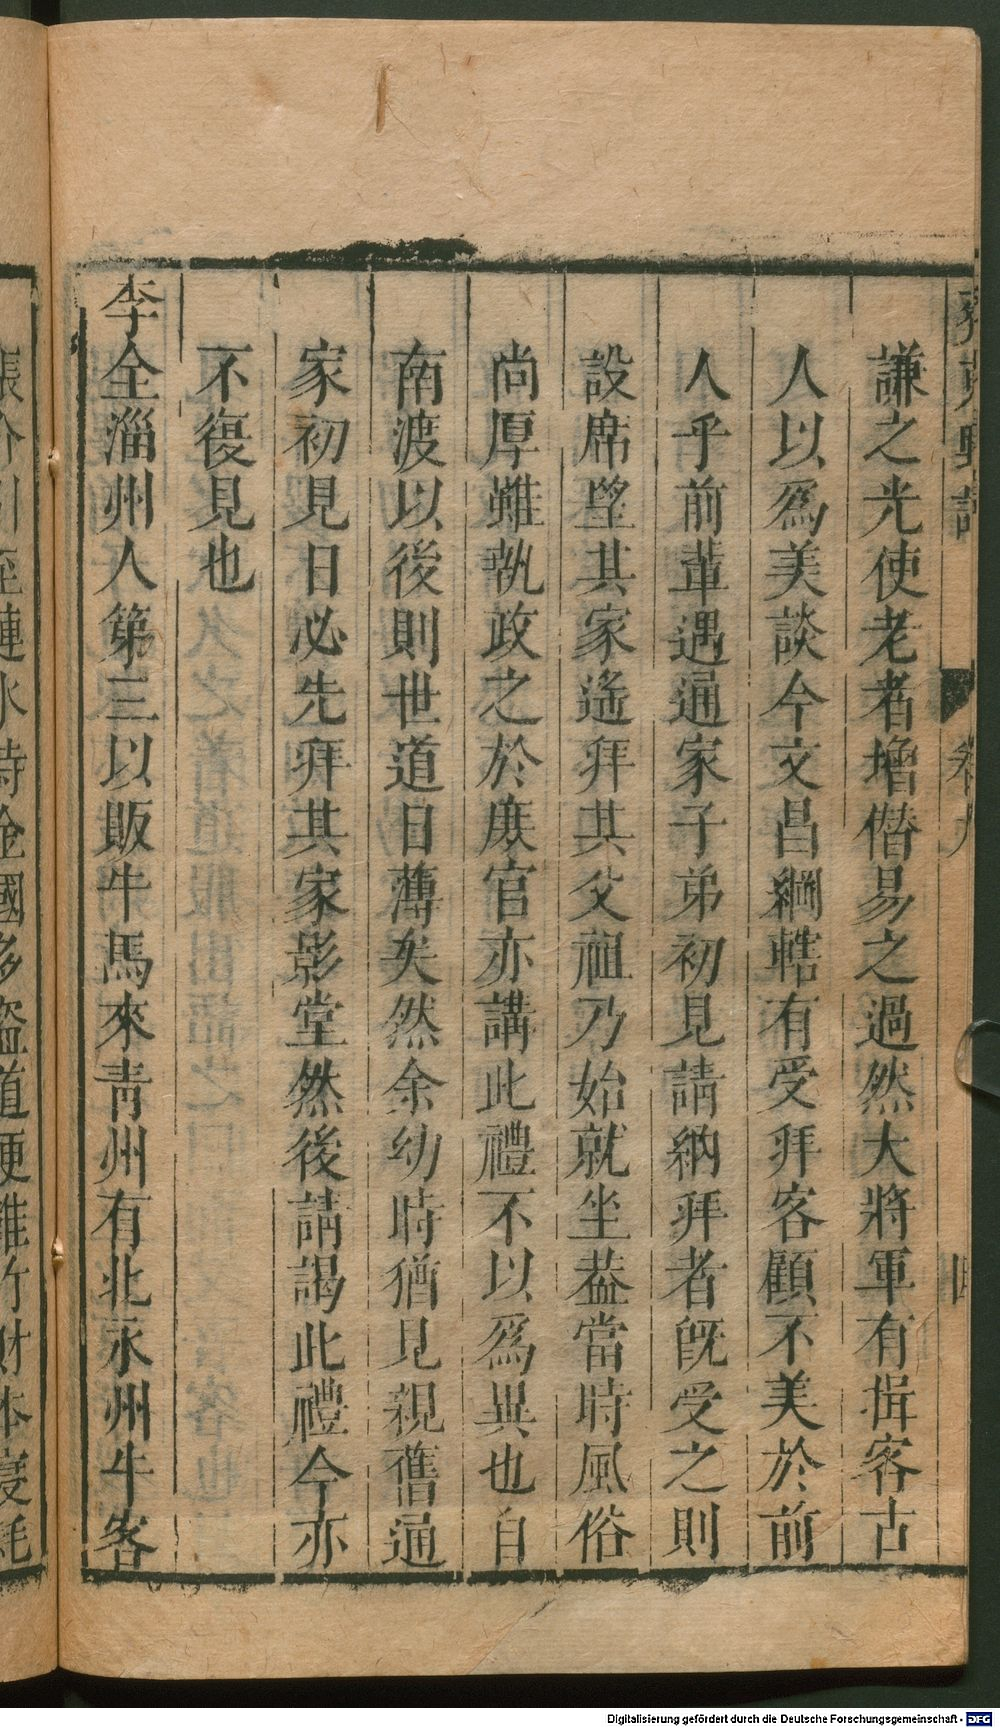 謙之光使老者增僭易之過然大將軍有揖客古
人以爲美談今文昌綱轄有受拜客顧不美於前
人乎前輩遇通家子弟初見請納拜者旣受之則
設席望其家遙拜其父祖乃始就坐葢當時風俗
尚厚雖執政之於庶官亦講此禮不以爲異也自
南渡以後則世道日薄矣然余幼時猶見親舊通
家初見日必先拜其家影堂然後請謁此禮今亦
不復見也
李全淄州人第三以販牛馬來靑州有北永州牛客
張介引至漣水時金國多盜道梗難行財本寖耗
Digitalisierung gefördert durch die Deutsche Forschungsgemeinschaft - DFG